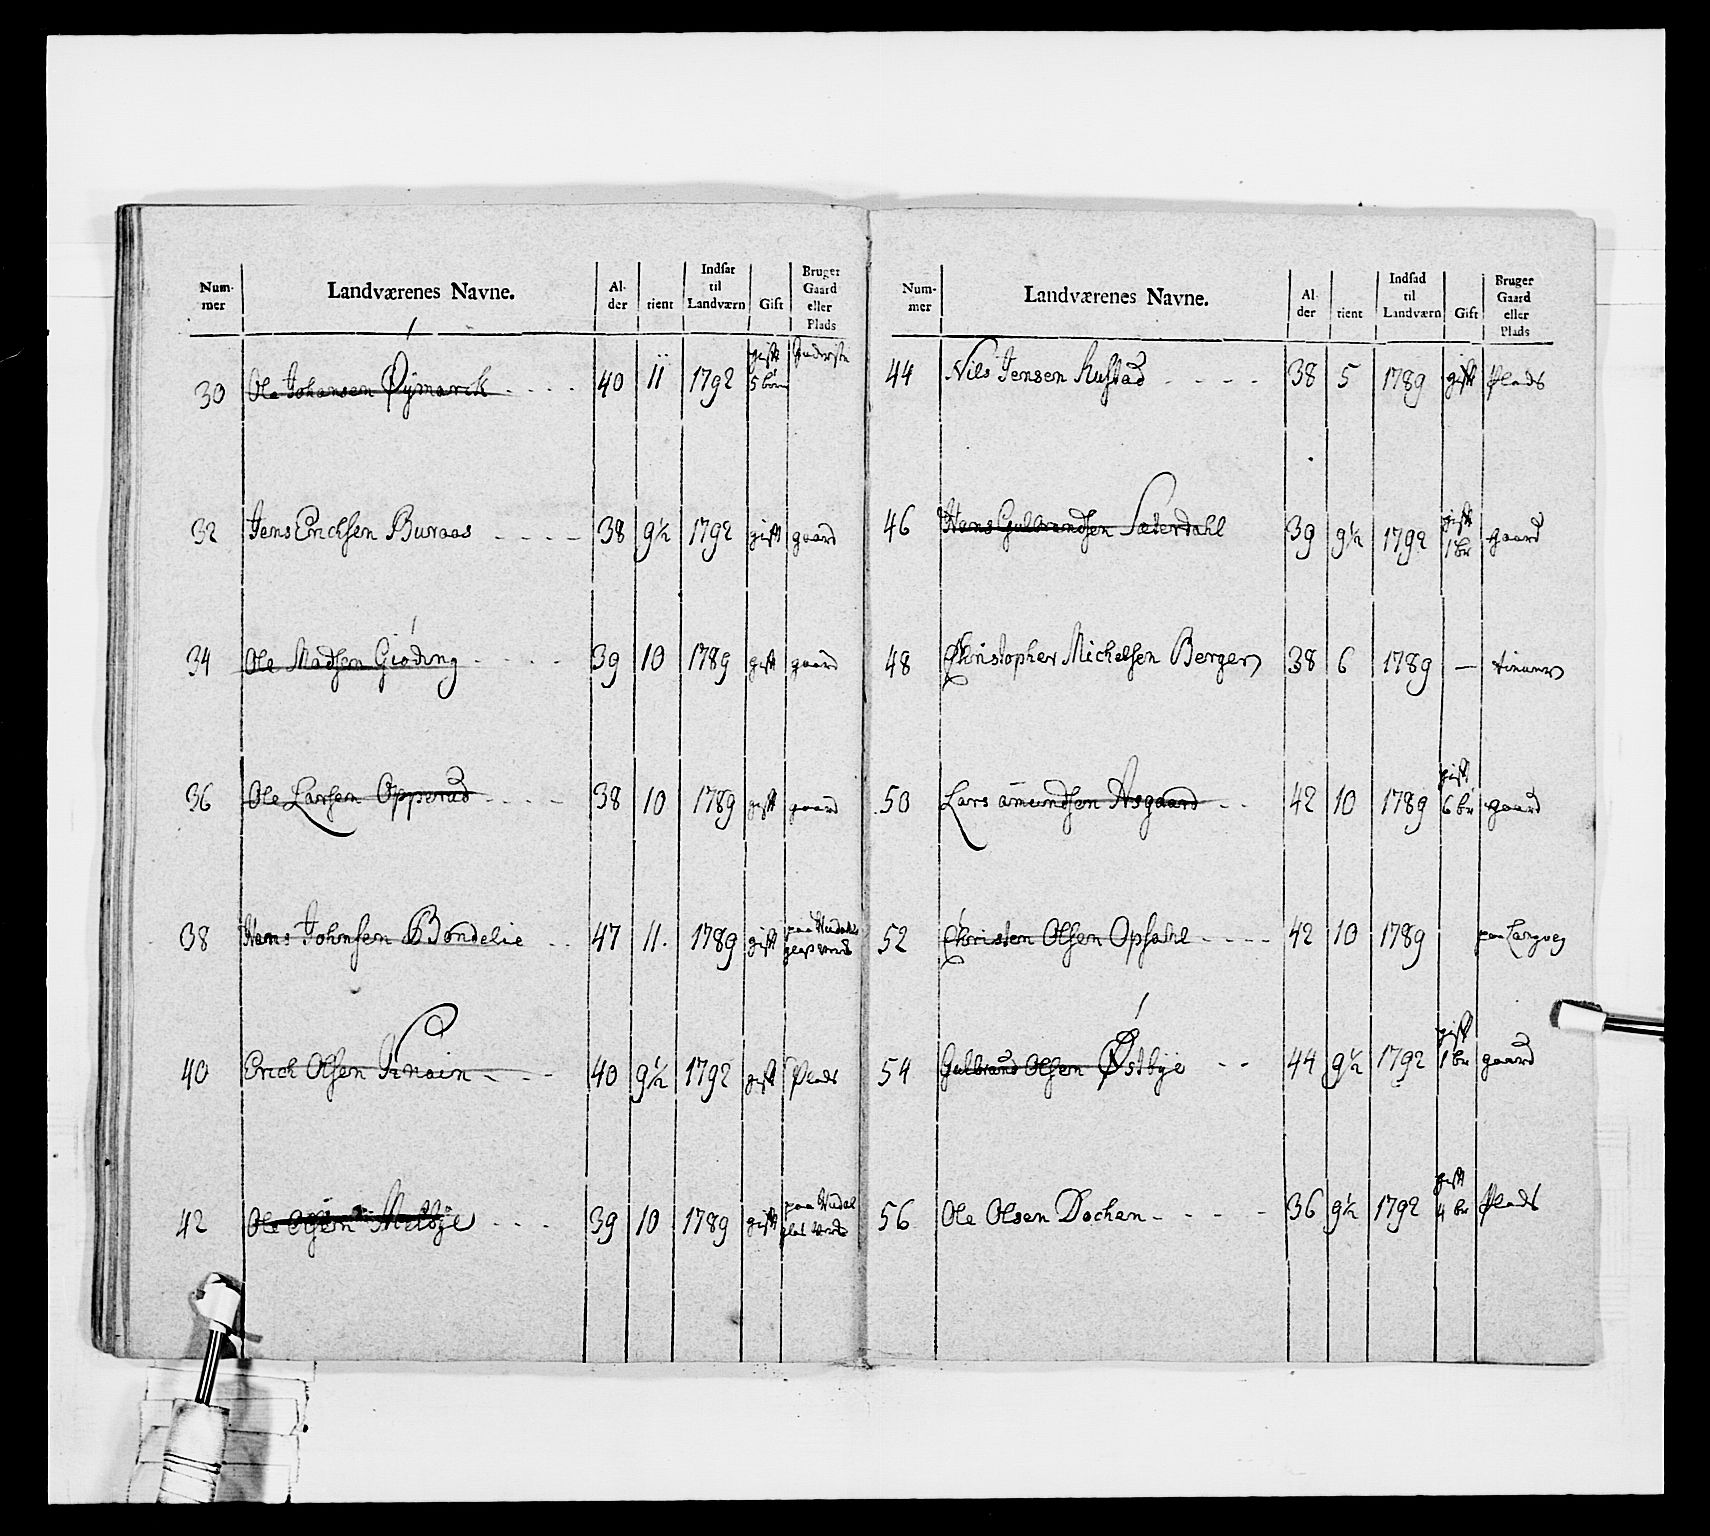 Num- mer | Landværenes Navne. | Al- der | tient | Indsat til Landværn | Gift | Bruger Gaard eller Plads
30 Ole Johansen Øÿmarck 40 11 1792 gift 5 børn Inderste
32 Jens Erichsen Buraas 38 9½ 1792 gift gaard
34 Ole Madsen Giøding 39 10 1789 gift gaard
36 Ole Larsen Opperud 38 10 1789 gift gaard
38 Hans Johnsen Bøndelie 47 11. 1789 gift paa Hudahls glas værk
40 Erich Olsen Knoin 40 9½ 1792 gift Plads
42 Ole Olsen Melbÿe 39 10 1789 gift paa Hudal glas værk
Num- mer | Landværenes Navne. | Al- der | tient | Indsad til Landværn | Gift | Bruger Gaard eller Plads
44 Nils Jensen Rustad 38 5 1789 gift Plads
46 Hans Gulbrandsen Sæterdahl 39 9½ 1792 gift 1 br gaard
48 Christopher Michelsen Berger 38 6 1789 —
50 Lars amundsen Asgaard 42 10 1789 gift 6 br gaard
52 Christen Olsen Opsahl 42 10 1789 paa Langveg
54 Gulbrand Olsen Østbÿe 44 9½ 1792 gift 1 br gaard
56 Ole Olsen Dochen 36 9½ 1792 gift 4 br Plads